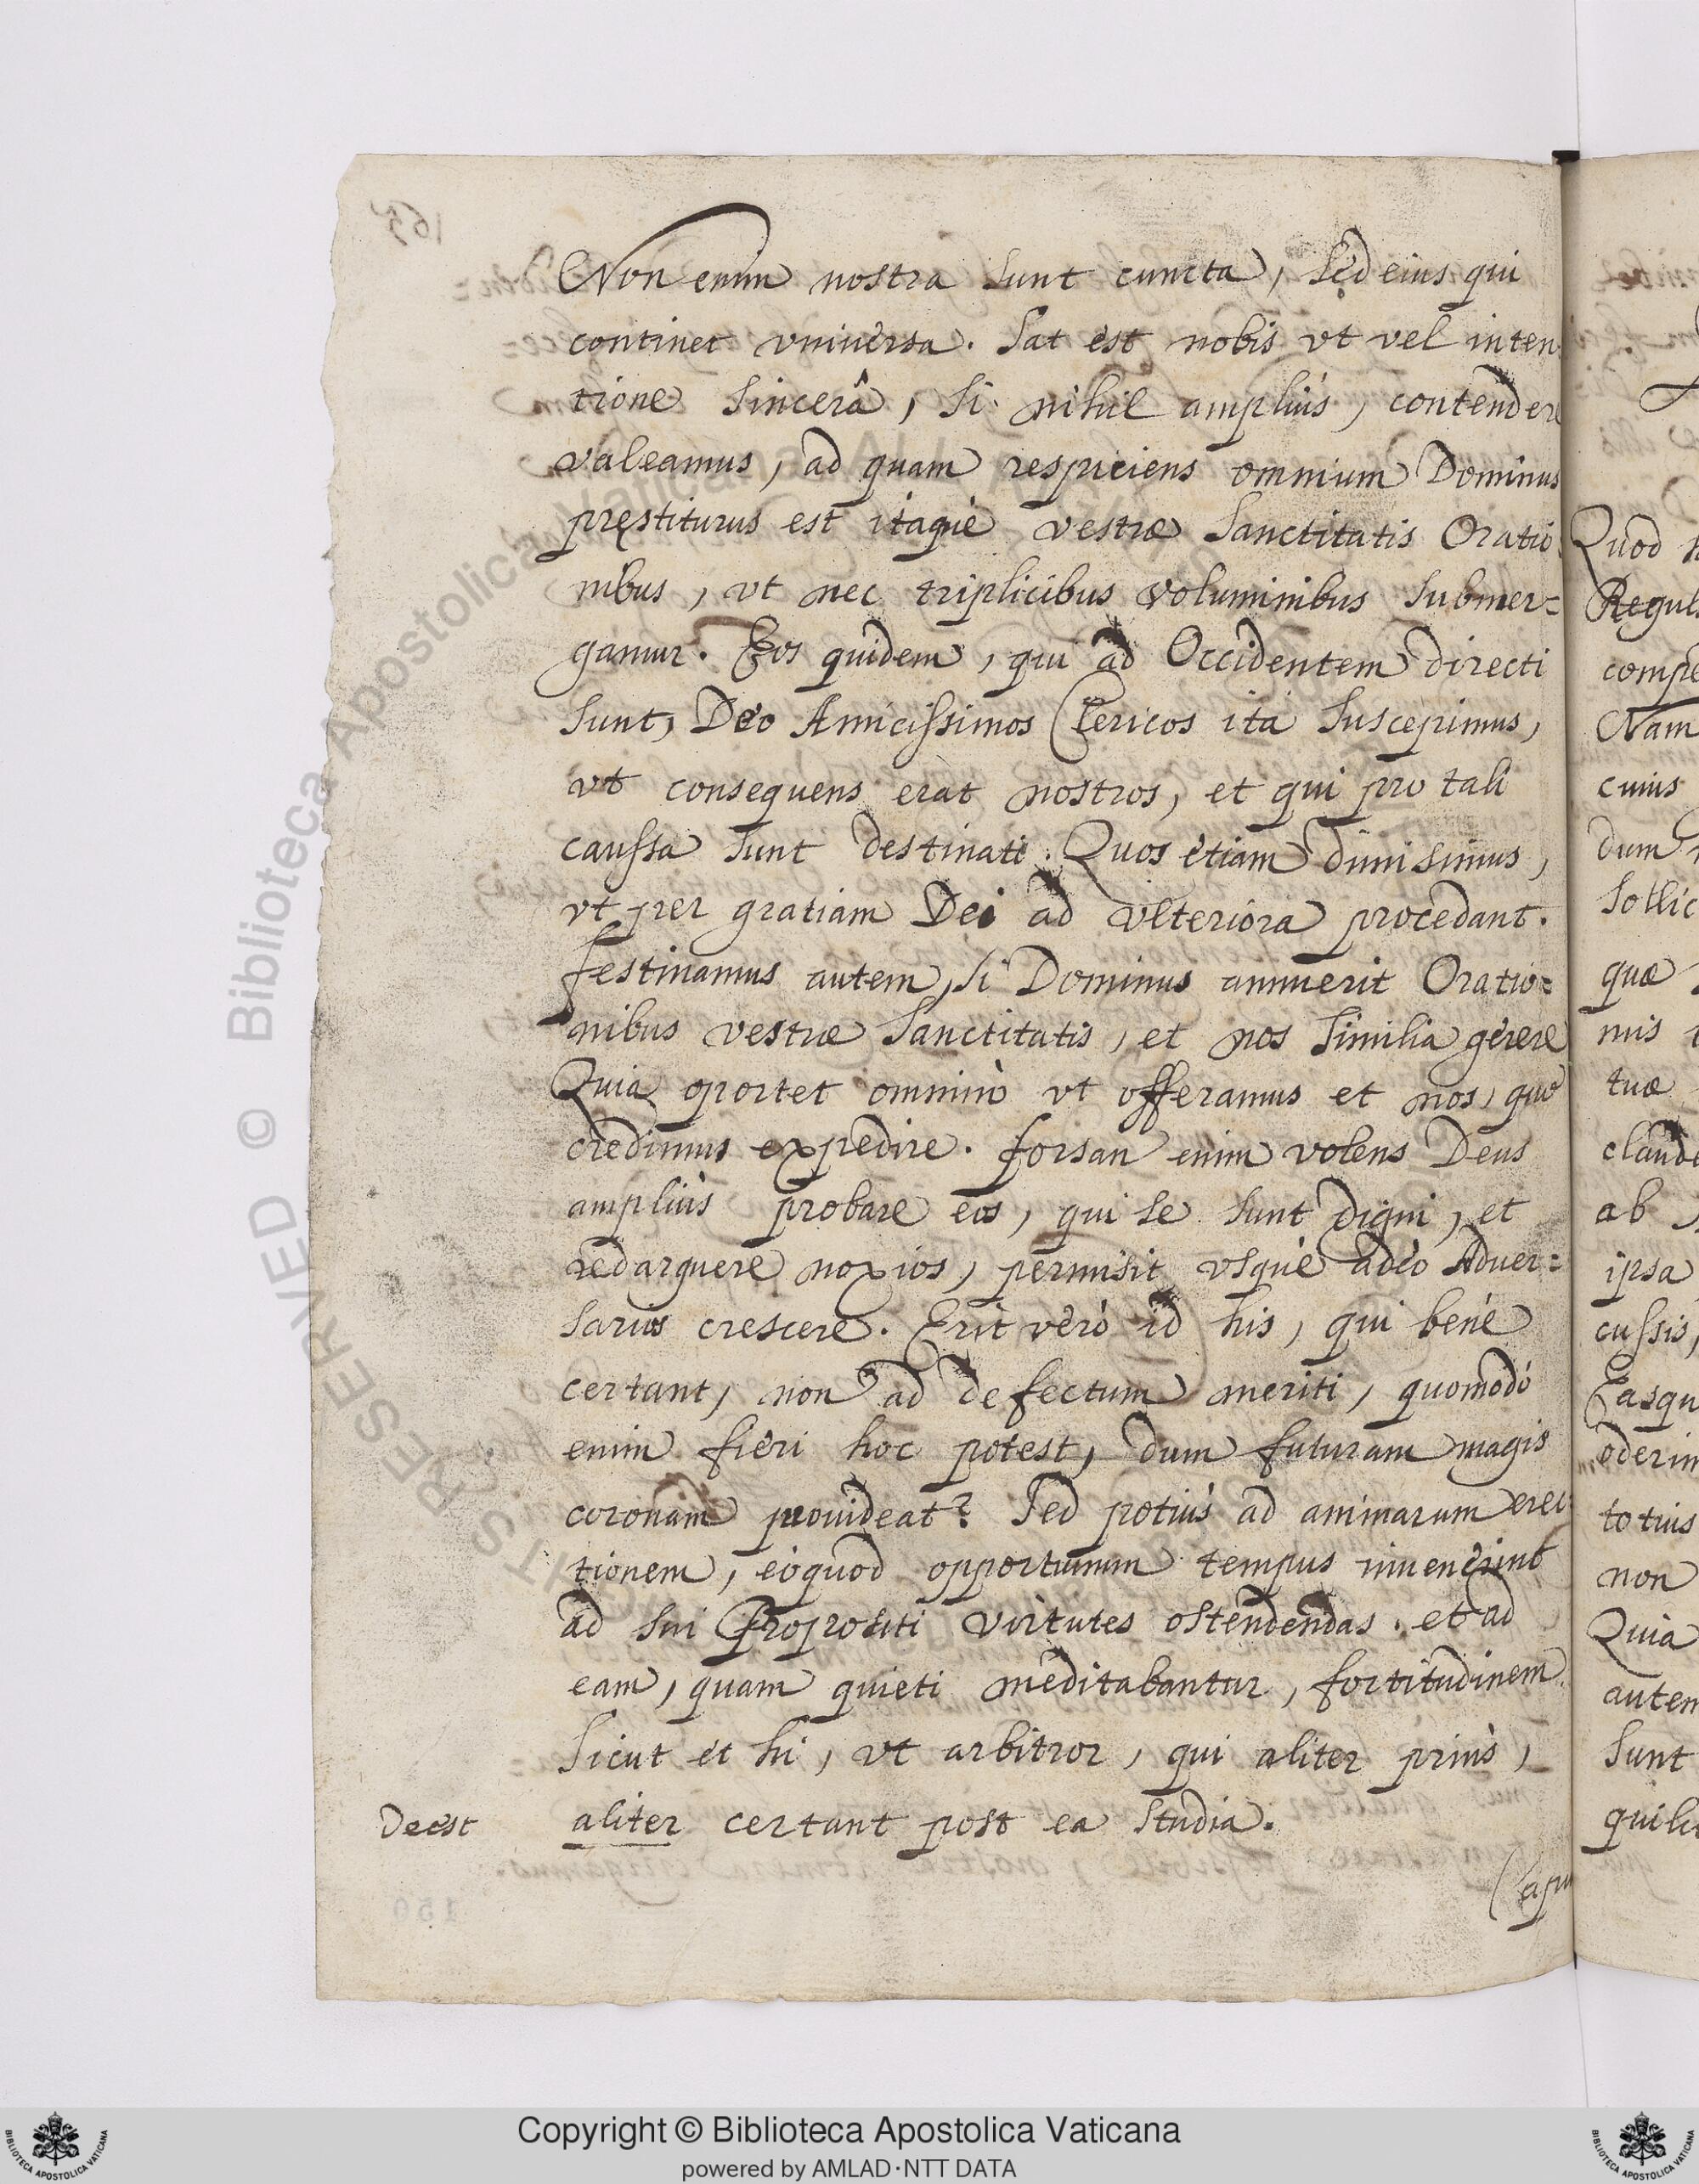 Non enim nostra sunt cuncta, sed eius qui
continet vniuersa. Sat est nobis vt vel inten
tione sincerâ, si nihil ampliùs, contendere
valeamus, ad quam respiciens omnium Dominus
pręstiturus est itaquè vestræ Sanctitatis Oratio
nibus, vt nec triplicibus voluminibus submer=
gamur. Eos quidem, qui ad Occidentem directi
sunt, Deo Amicissimos Clericos ita suscepimus,
vt consequens erat nostros, et qui pro tali
caussa sunt destinati. Quos etiam dimisimus,
vt per gratiam Dei ad vlteriora procedant.
festinamus autem, si Dominus annuerit Oratio=
nibus vestræ Sanctitatis, et nos similia gerere
Quia oportet omninò vt offeramus et nos, quæ
credimus expedire. forsan enim volens Deus
ampliùs probare eos, qui se sunt digni, et
redarguere noxios, permisit vsquè adeò Aduer=
sarios crescere. Erit verò id his, qui benè
certant, non ad defectum meriti, quomodò
enim fieri hoc potest, dum futuram magis
coronam prouideat? Sed potiùs ad animarum erec
tionem, eòquod opportunum tempus inuenerint
ad sui Propositi virtutes ostendendas. et ad
eam, quam quieti meditabantur, fortitudinem.
Sicut et hi, vt arbitror, qui aliter priùs,
Deest aliter certant post ea studia.
Capu
Quod
Regul
compe
Nam
cuius
dum
sollic
quæ
nis
tuæ
claude
ab
ipsa
cussis,
Easqu
oderim
totius
non
Quia
autem
sunt
quili
163
150
© Biblioteca Apostolica Vaticana
Copyright © Biblioteca Apostolica Vaticana
powered by AMLAD·NTT DATA
BIBLIOTECA APOSTOLICA VATICANA
BIBLIOTECA APOSTOLICA VATICANA